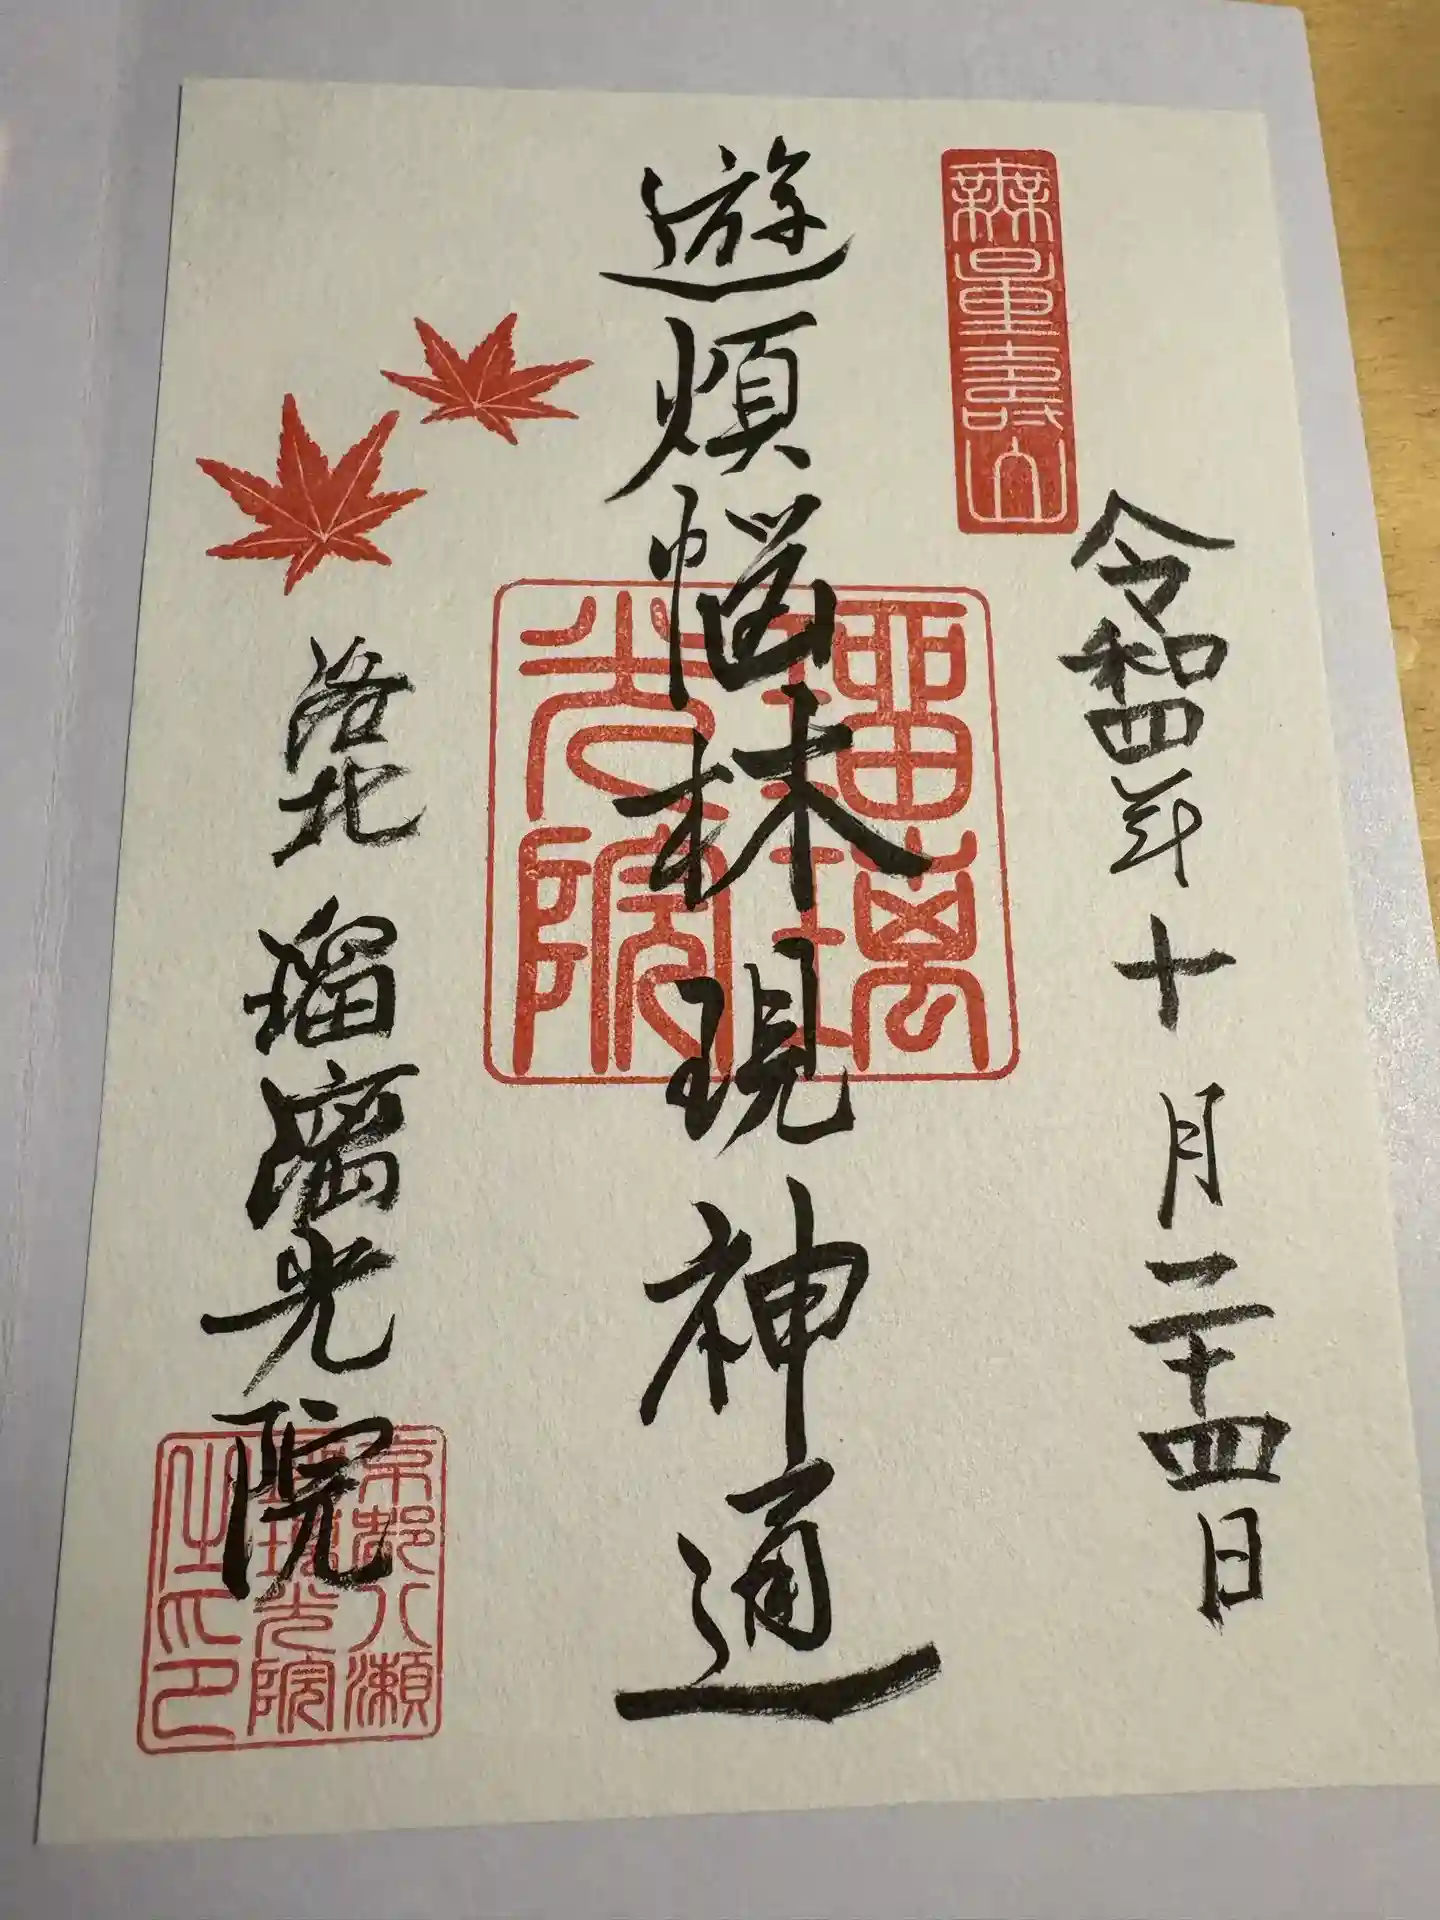 無量壽山
令和四年十月二十四日
遊煩悩林現神通
瑠璃光院
洛北 瑠璃光院
京都八瀬瑠璃光院之印